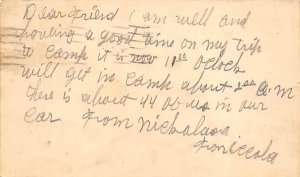 Dear friend I am well and
haveing a good time on my trip
to camp it is now 11 00 oclock
will get in camp about a m
there is about 44 of us in our
car from Nickalaos